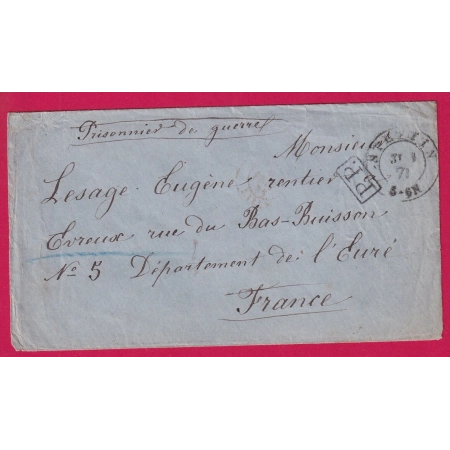 Prisonnier de guerre
Monsieur
Lesage Eugène rentier
Evreux rue du Bas-Buisson
No 5 Département de l'Eure
France
P.P.
71